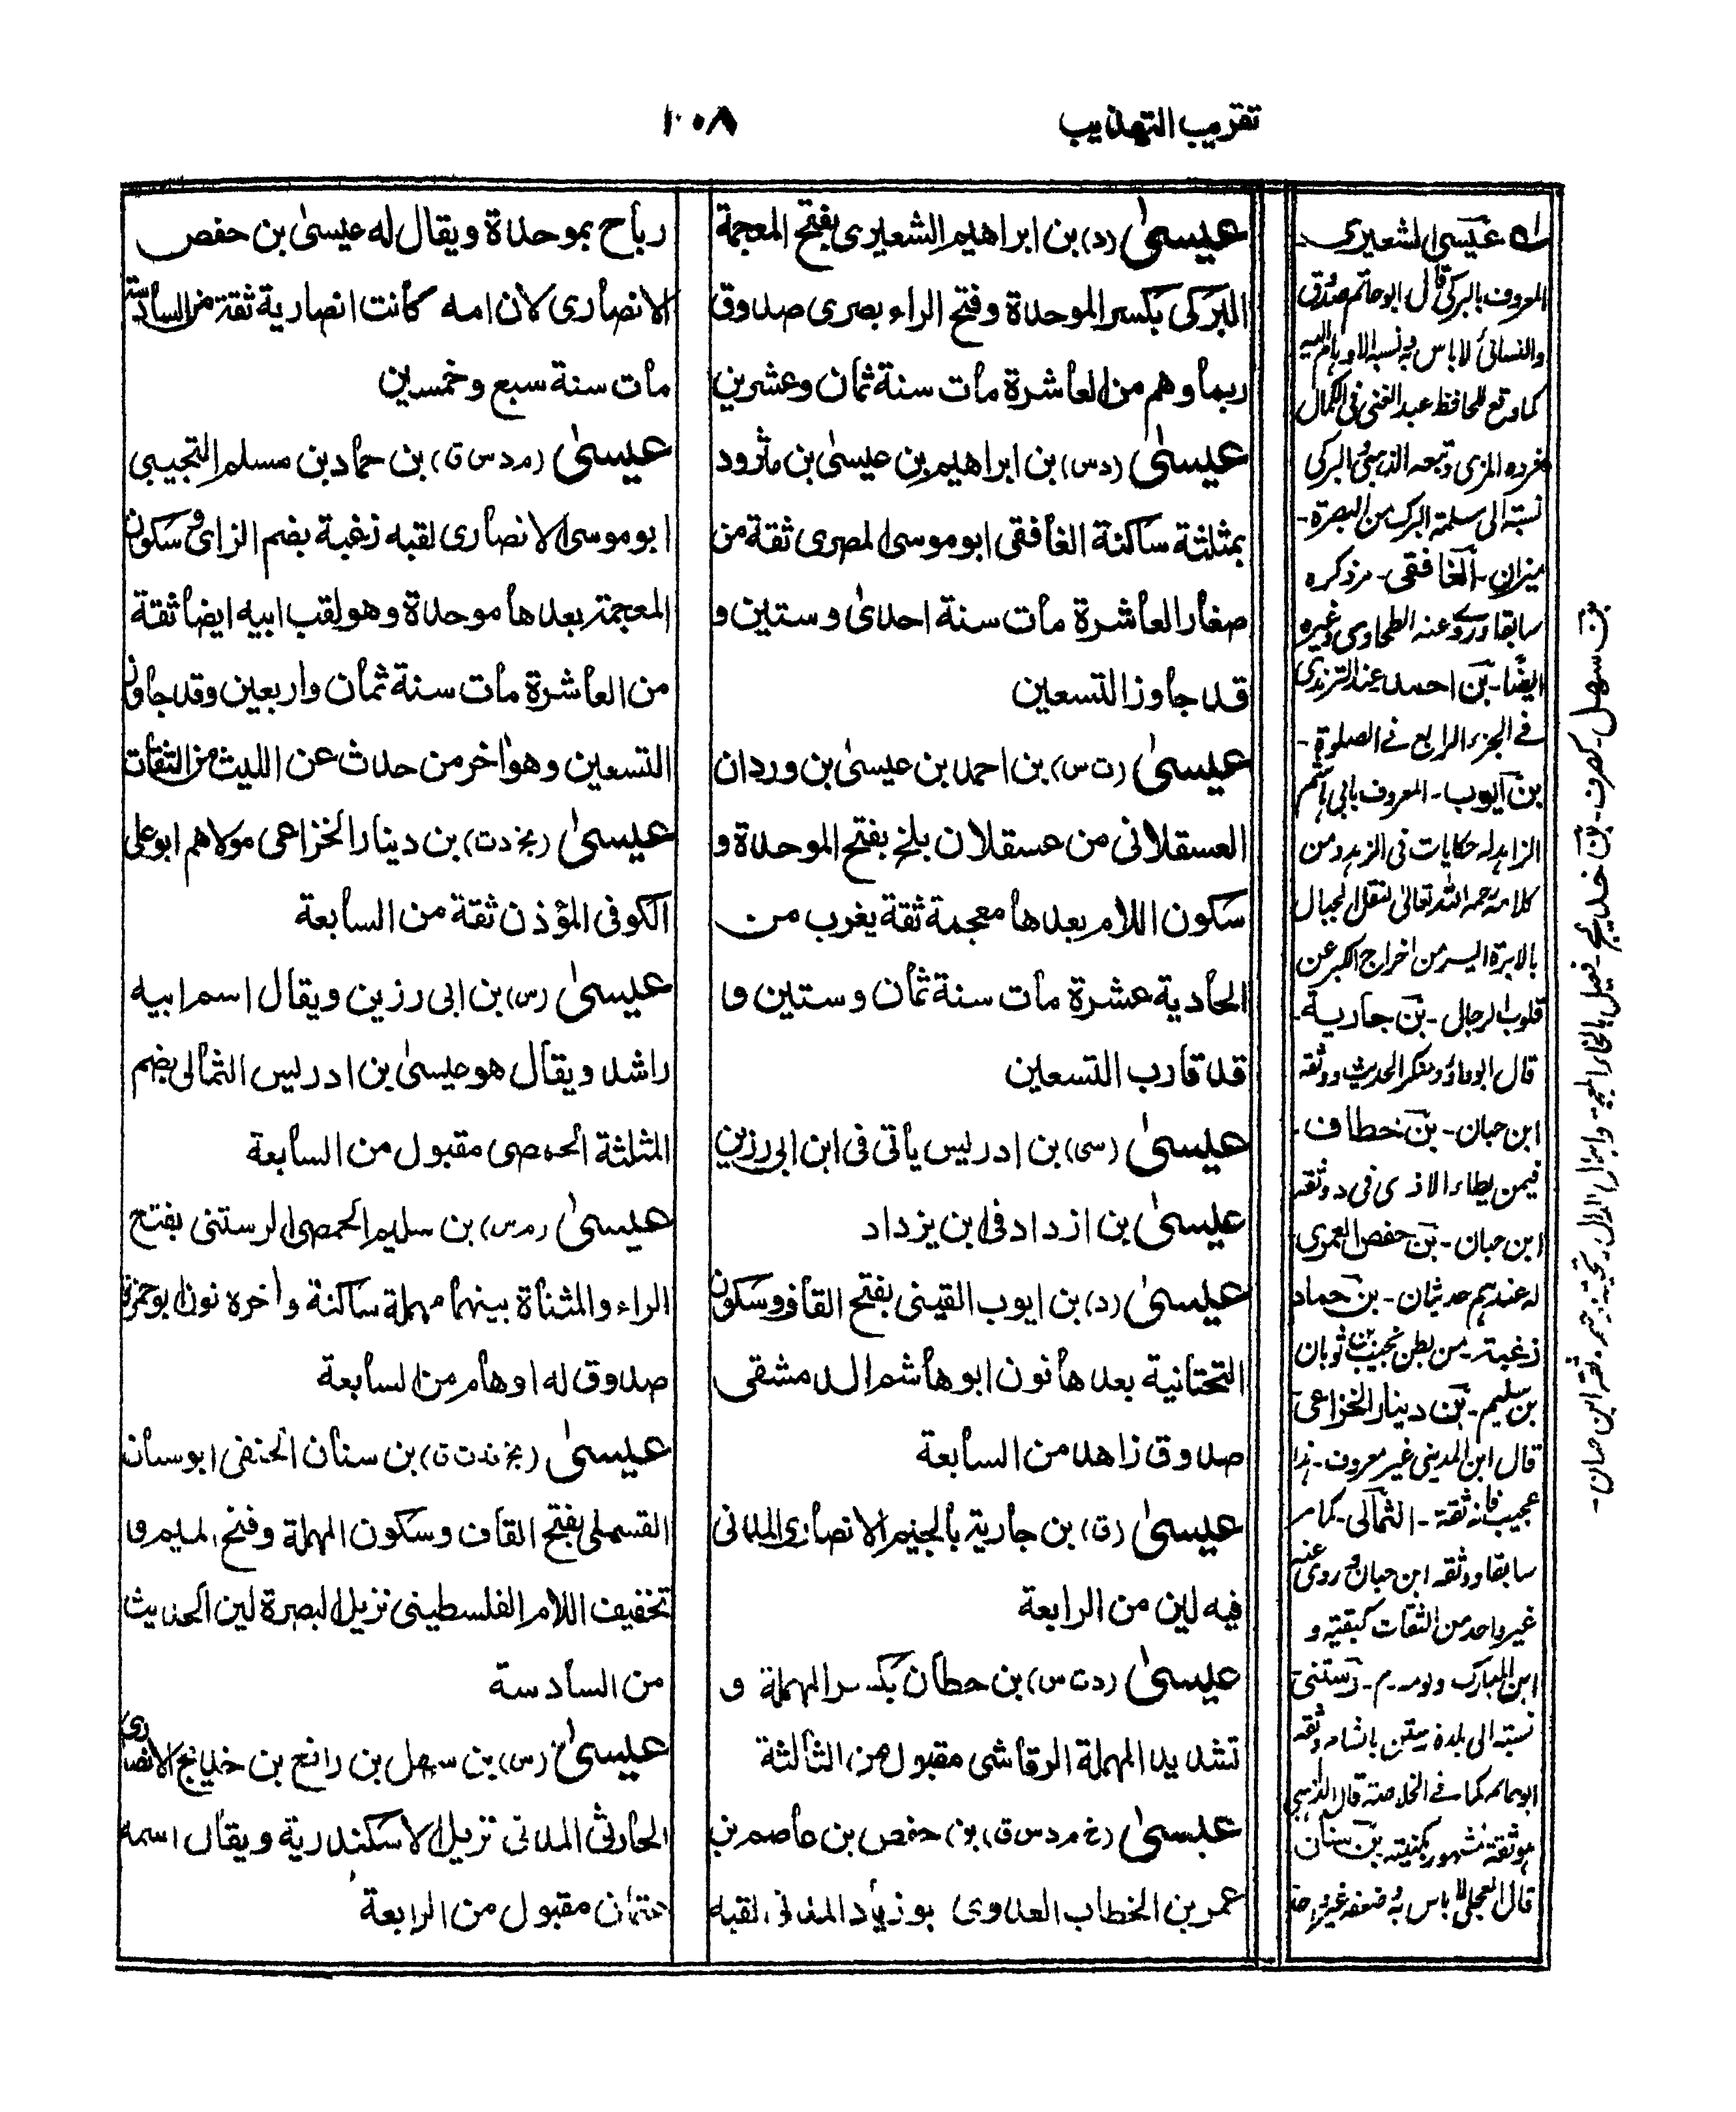 تقريب التهذيب
١٠٠٨
عيسىٰ (د) بن ابراهيم الشعيرى بفتح المعجمة
البركى بكسر الموحدة وفتح الراء بصرى صدوق
ربما وهم من العاشرة مات سنة ثمان وعشرين
عيسىٰ (دس) بن ابراهيم بن عيسىٰ بن مثرود
بمثلثة ساكنة الغافقى ابو موسى المصرى ثقة من
صغار العاشرة مات سنة احدىٰ وستين و
قد جاوز التسعين
عيسىٰ (ت س) بن احمد بن عيسىٰ بن وردان
العسقلانى من عسقلان بلخ بفتح الموحدة و
سكون اللام بعدها معجمة ثقة يغرب من
الحادية عشرة مات سنة ثمان وستين وا
قد قارب التسعين
عيسىٰ (سى) بن ادريس يأتى فى ابن ابى رزين
عيسىٰ بن ازداد فى ابن يزداد
عيسىٰ (د) بن ايوب القينى بفتح القاف وسكون
التحتانية بعدها نون ابو هاشم الدمشقى
صدوق زاهد من السابعة
عيسىٰ (ق) بن جارية بالجيم الانصارى المدنى
فيه لين من الرابعة
عيسىٰ (دت س) بن حطان بكسر المهملة و
تشديد المهملة الرقاشى مقبول من الثالثة
عيسىٰ (خ م د س ق) بن حفص بن عاصم بن
عمر بن الخطاب العدوى بو زياد المدنى لقبه
رباح بموحدة ويقال له عيسىٰ بن حفص
الانصارى لان امه كانت انصارية ثقة من السادسة
مات سنة سبع وخمسين
عيسىٰ (م د س ق) بن حماد بن مسلم التجيبى
ابو موسى الانصارى لقبه زغبة بضم الزاى وسكون
المعجمة بعدها موحدة وهو لقب ابيه ايضا ثقة
من العاشرة مات سنة ثمان واربعين وقد جاوز
التسعين وهو اٰخر من حدث عن الليث من الثقات
عيسىٰ (بخ دت) بن دينار الخزاعى مولاهم ابو على
الكوفى المؤذن ثقة من السابعة
عيسىٰ (س) بن ابى رزين ويقال اسم ابيه
راشد ويقال هو عيسىٰ بن ادريس الثمالى بضم
المثلثة الحمصى مقبول من السابعة
عيسىٰ (مدس) بن سليم الحمصى الرستنى بفتح
الراء والمثناة بينهما مهملة ساكنة واٰخره نون ابو حمزة
صدوق له اوهام من السابعة
عيسىٰ (بخ قدت ق) بن سنان الحنفى ابو سنان
القسملى بفتح القاف وسكون المهملة وفتح الميم وا
تخفيف اللام الفلسطينى نزيل البصرة لين الحديث
من السادسة
عيسىٰ (س) بن سهل بن رافع بن خديج الانصارى
الحارثى المدنى نزيل الاسكندرية ويقال اسمه
عثمان مقبول من الرابعة
له عيسى الشعيرى
المعروف بالبركى قال ابو حاتم صدوق
والنسائى لا باس به نسبه الاوهام اليه
كما وقع للحافظ عبد الغنى فى الكمال
فرده المزى وتبعه الذهبى والبركى
نسبة الى سكة البرك من البصرة -
ميزان - الغافقى - مر ذكره
سابقا وروى عنه الطحاوى وغيره
ايضا - بن احمد عند الترمذى
فى الجزء الرابع فى الصلوة -
بن ايوب - المعروف بابى هاشم
الزاهد له حكايات فى الزهد ومن
كلامه رحمه الله تعالى لنقل الجبال
بالابرة ايسر من اخراج الكبر عن
قلوب الرجال - بن جارية -
قال ابو داؤد منكر الحديث ووثقه
ابن حبان - بن خطاف -
فيمن يطاء الاذى فى د وثقه
ابن حبان - بن حفص العمرى
له عندهم حديثان - بن حماد
زغبة - من بطن تجيب بن ثوبان
بن سليم - بن دينار الخزاعى
قال ابن المدينى غير معروف - هذا
عجيب فانه ثقة - الثمالى - كما مر
سابقا ووثقه ابن حبان وروى عنه
غير واحد من الثقات كبقية و
ابن المبارك - م - رستنى
نسبة الى بلدة رستن بالشام وثقه
ابو حاتم كما فى الخلاصة قال الذهبى
هو ثقة مشهور بكنيته بن سنان
قال العجلى لا باس به وضعفه غير واحد
بن سهل - كصرف - بن خديج - فعيل بالخاء المعجمة وابدال الدال وثقه ابن حبان -